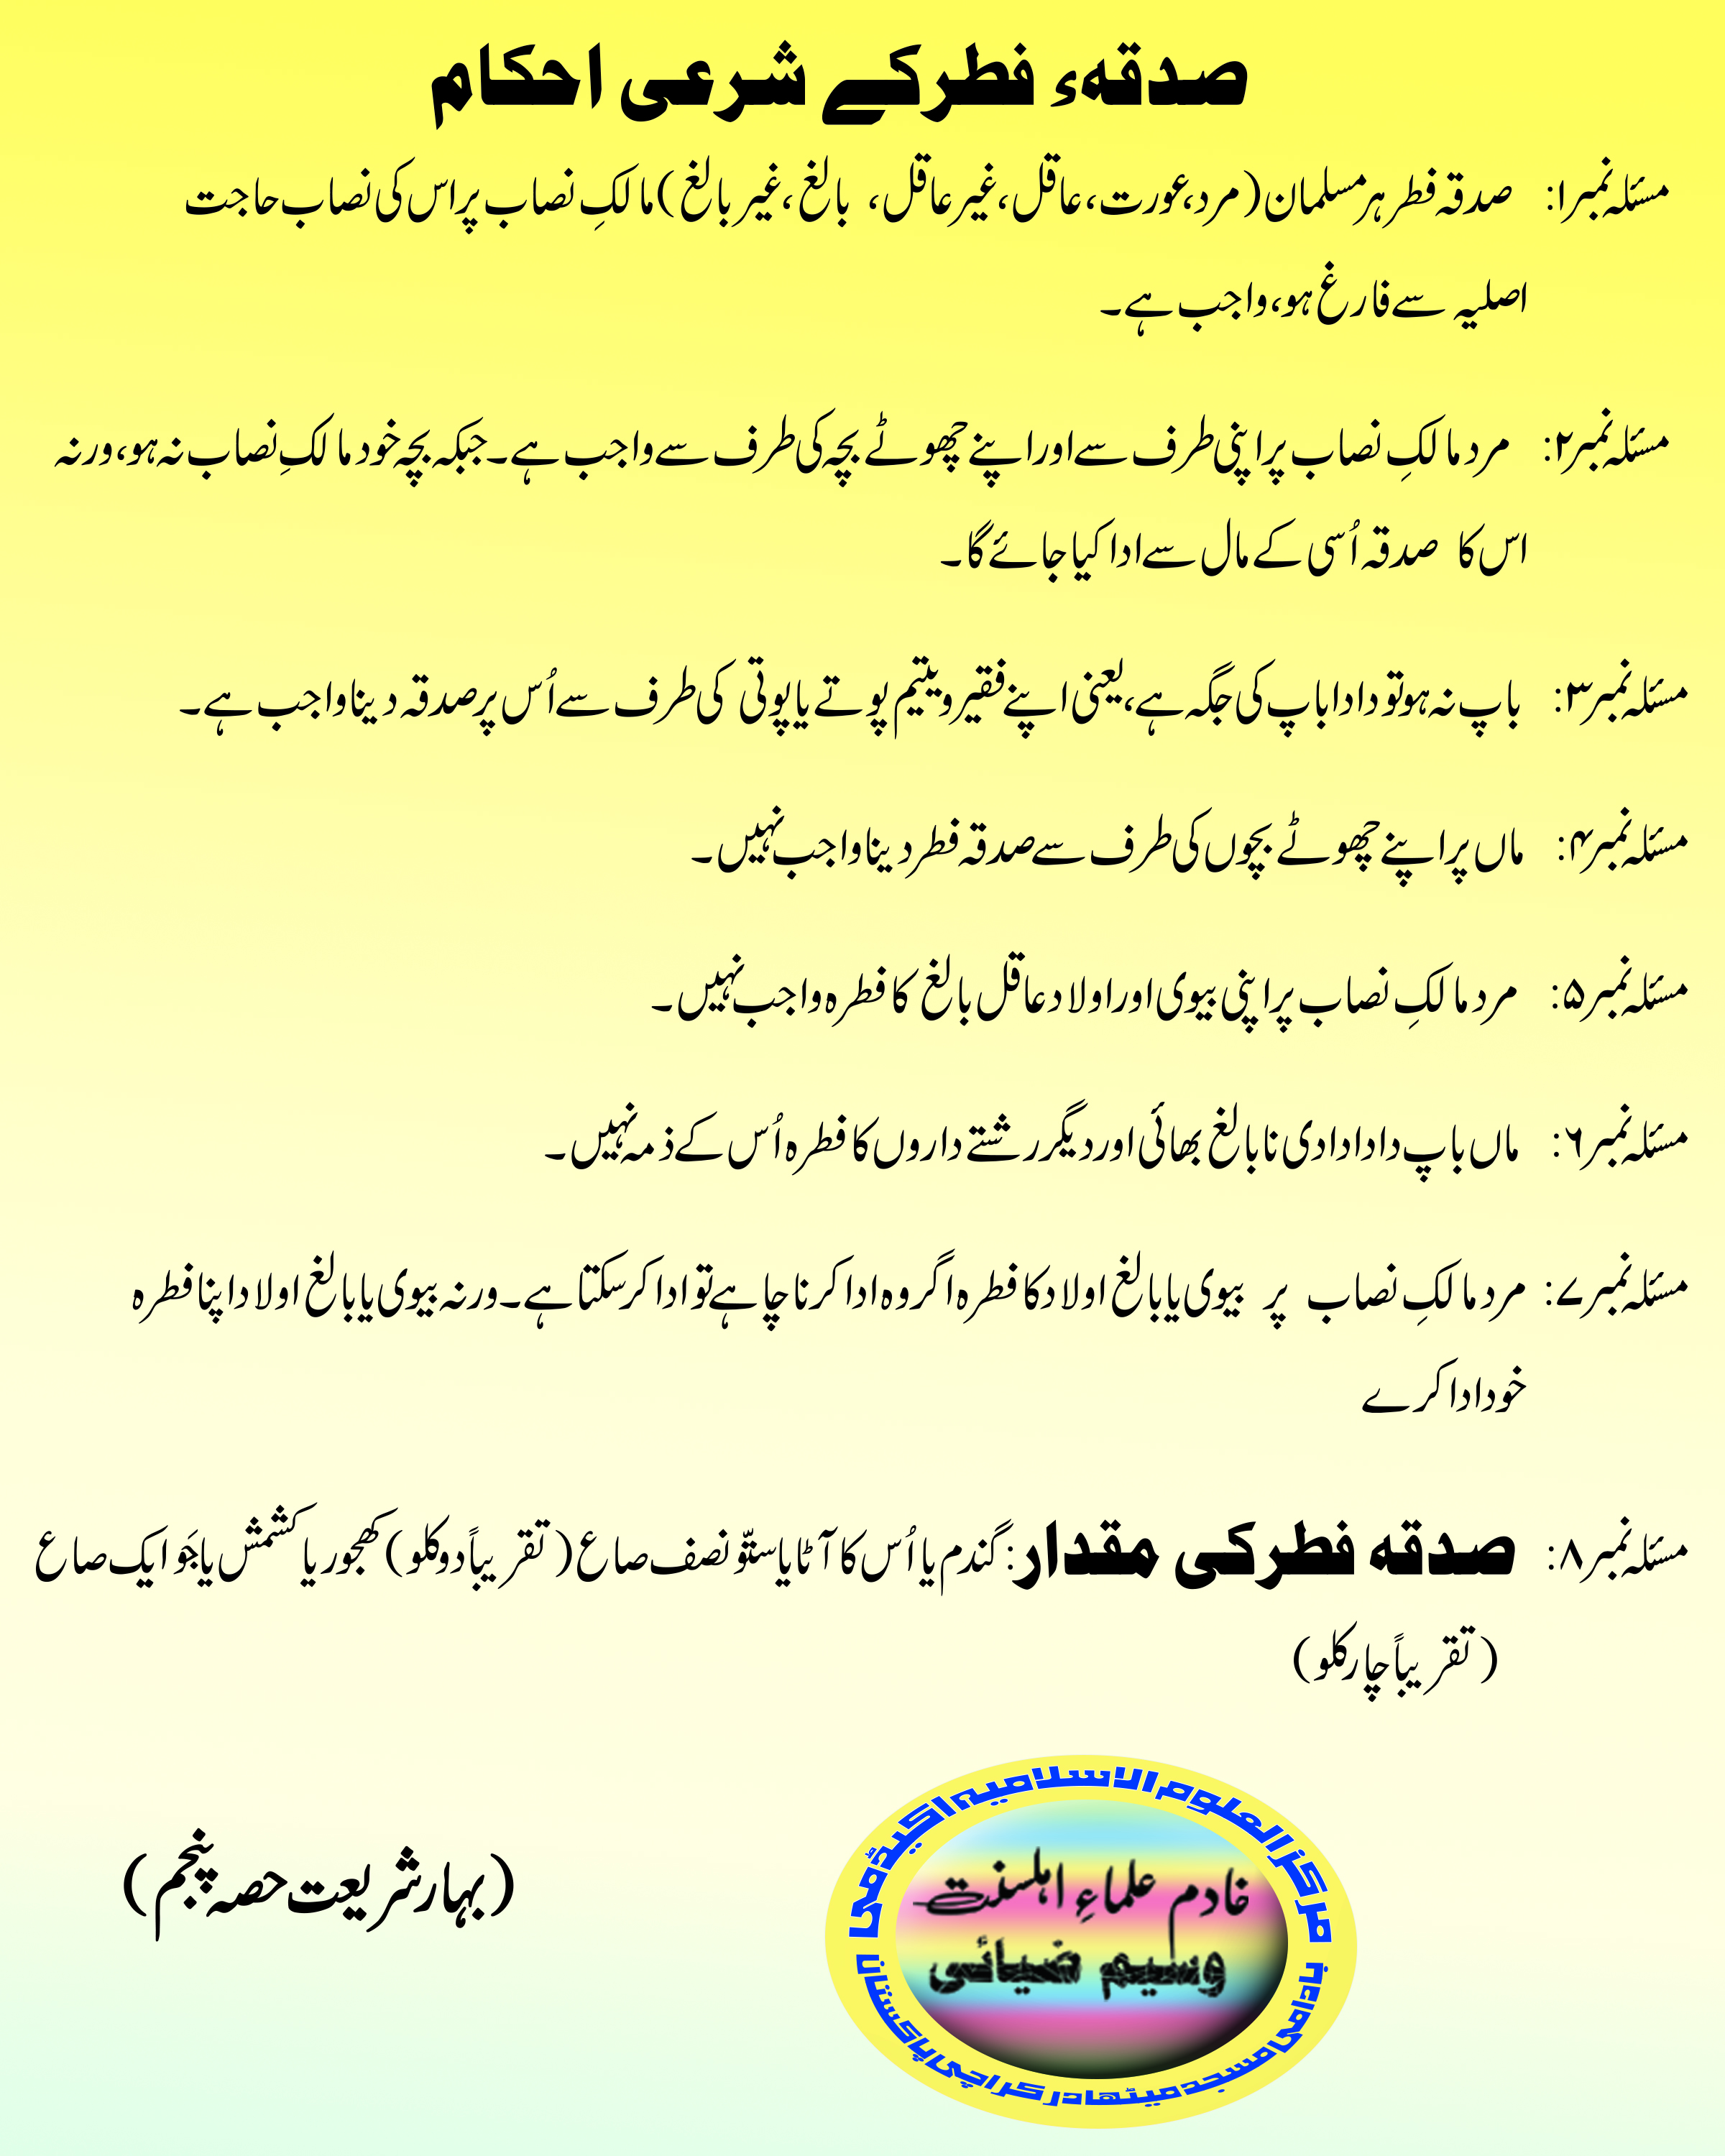 صدقہء فطرکے شرعی احکام
مسئلہ نمبر۱: صدقہ فطر ہر مسلمان (مرد، عورت، عاقل، غیر عاقل، بالغ، غیر بالغ) مالکِ نصاب پر اس کی نصاب حاجت
اصلیہ سے فارغ ہو، واجب ہے۔
مسئلہ نمبر۲: مرد مالکِ نصاب پر اپنی طرف سے اور اپنے چھوٹے بچہ کی طرف سے واجب ہے۔ جبکہ بچہ خود مالکِ نصاب نہ ہو، ورنہ
اس کا صدقہ اُسی کے مال سے ادا کیا جائے گا۔
مسئلہ نمبر۳: باپ نہ ہو تو دادا باپ کی جگہ ہے، یعنی اپنے فقیر و یتیم پوتے یا پوتی کی طرف سے اُس پر صدقہ دینا واجب ہے۔
مسئلہ نمبر۴: ماں پر اپنے چھوٹے بچوں کی طرف سے صدقہ فطر دینا واجب نہیں۔
مسئلہ نمبر۵: مرد مالکِ نصاب پر اپنی بیوی اور اولاد عاقل بالغ کا فطرہ واجب نہیں۔
مسئلہ نمبر۶: ماں باپ دادا دادی نابالغ بھائی اور دیگر رشتے داروں کا فطرہ اُس کے ذمہ نہیں۔
مسئلہ نمبر۷: مرد مالکِ نصاب پر بیوی یا بالغ اولاد کا فطرہ اگر وہ ادا کرنا چاہے تو ادا کر سکتا ہے۔ ورنہ بیوی یا بالغ اولاد اپنا فطرہ
خود ادا کرے
مسئلہ نمبر۸: صدقہ فطر کی مقدار: گندم یا اُس کا آٹا یا ستّو نصف صاع (تقریباً دو کلو) کھجور یا کشمش یا جَو ایک صاع
(تقریباً چار کلو)
مرکز العلوم الاسلامیہ اکیڈمی
خادم علماءِ اہلسنت
وسیم ضیائی
بادامی مسجد میٹھادر کراچی پاکستان
(بہار شریعت حصہ پنجم)